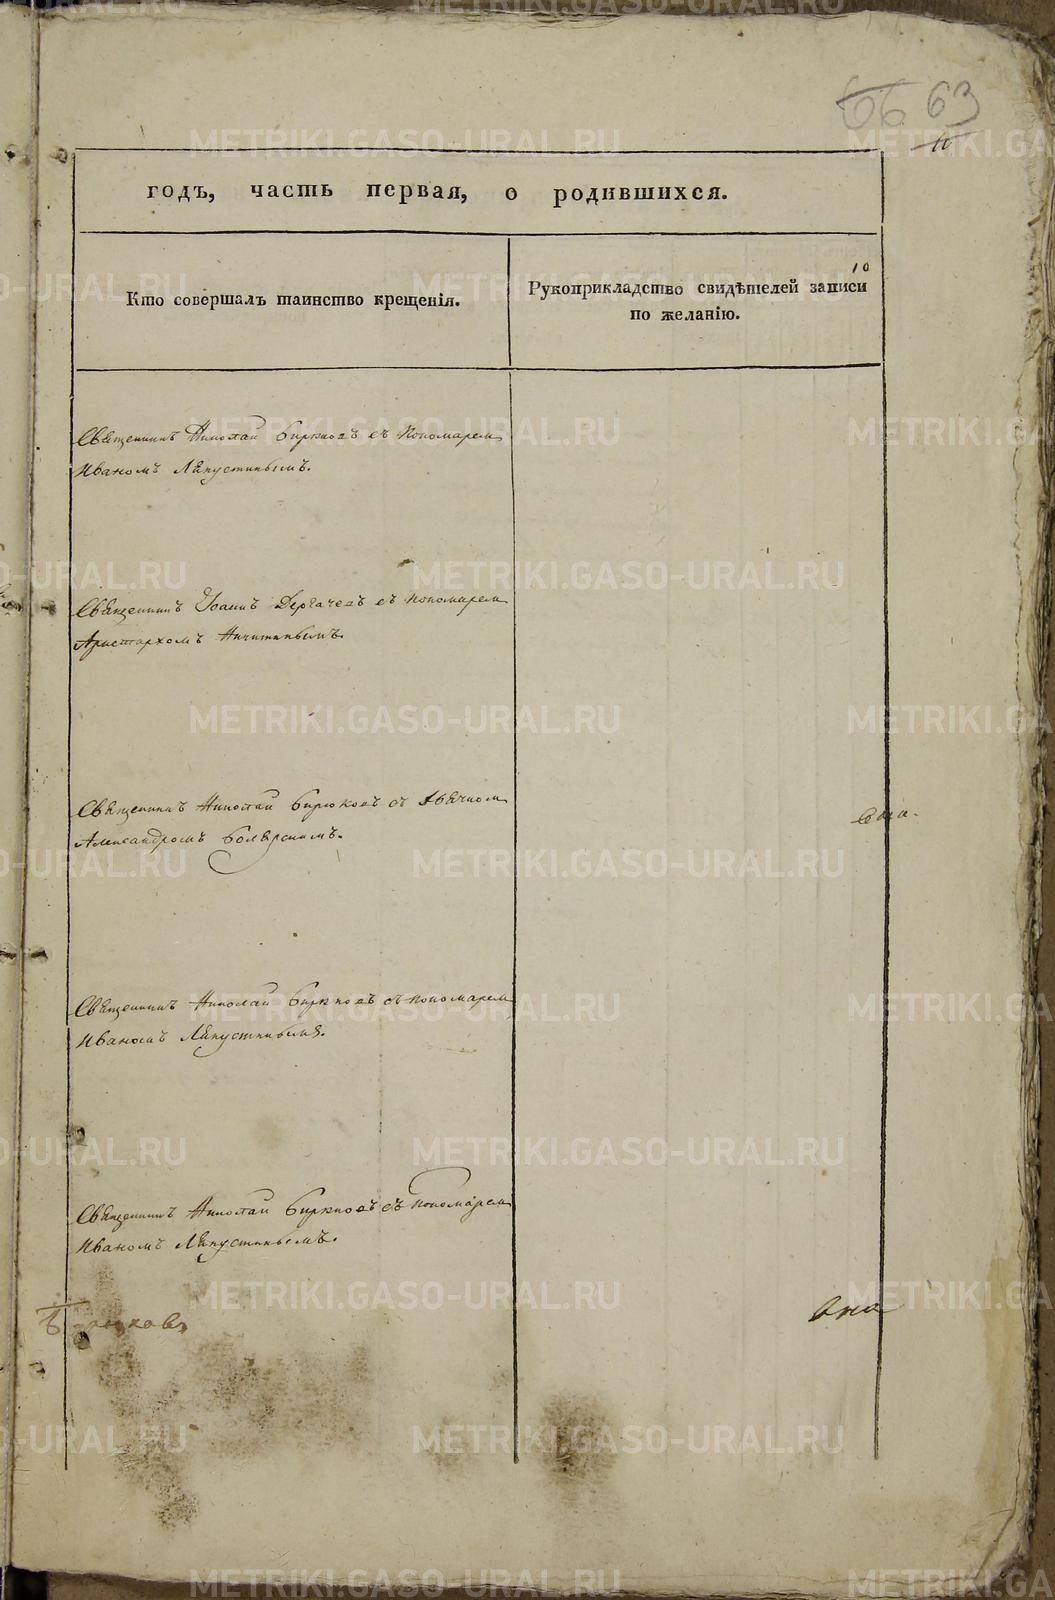 66 63
10
годъ, часть первая, о родившихся.
10
Кто совершалъ таинство крещенія.
Рукоприкладство свидѣтелей записи
по желанію.
Священникъ Николай Бирюковъ съ Пономарем
Иваномъ Ляпустинымъ.
Священникъ Іоаннъ Дергачевъ съ пономарем
Аристархомъ Никитинымъ.
Священникъ Николай Бирюковъ съ Дьячком
Александромъ Боярскимъ.
Священникъ Николай Бирюковъ съ пономарем
Иваномъ Ляпустинымъ.
Священникъ Николай Бирюковъ съ пономарем
Иваномъ Ляпустинымъ.
METRIKI.GASO-URAL.RU